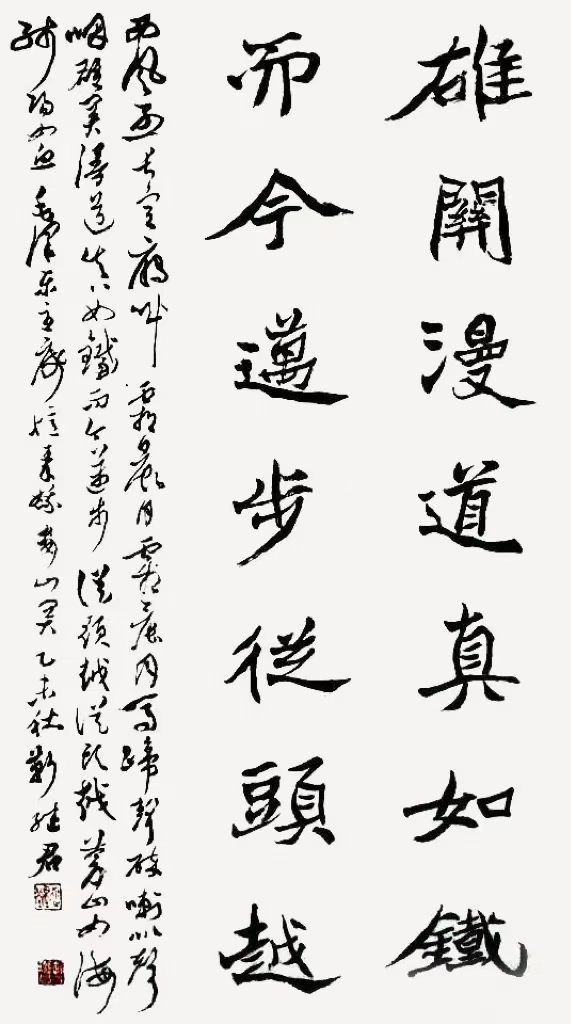 雄關漫道真如鐵
而今邁步從頭越
西风烈长空雁叫霜晨月霜晨月马蹄聲碎喇叭聲
咽雄关漫道真如鐵而今邁步從頭越從头越蒼山如海
残阳如血毛泽东主席憶秦娥娄山关乙未秋靳继君